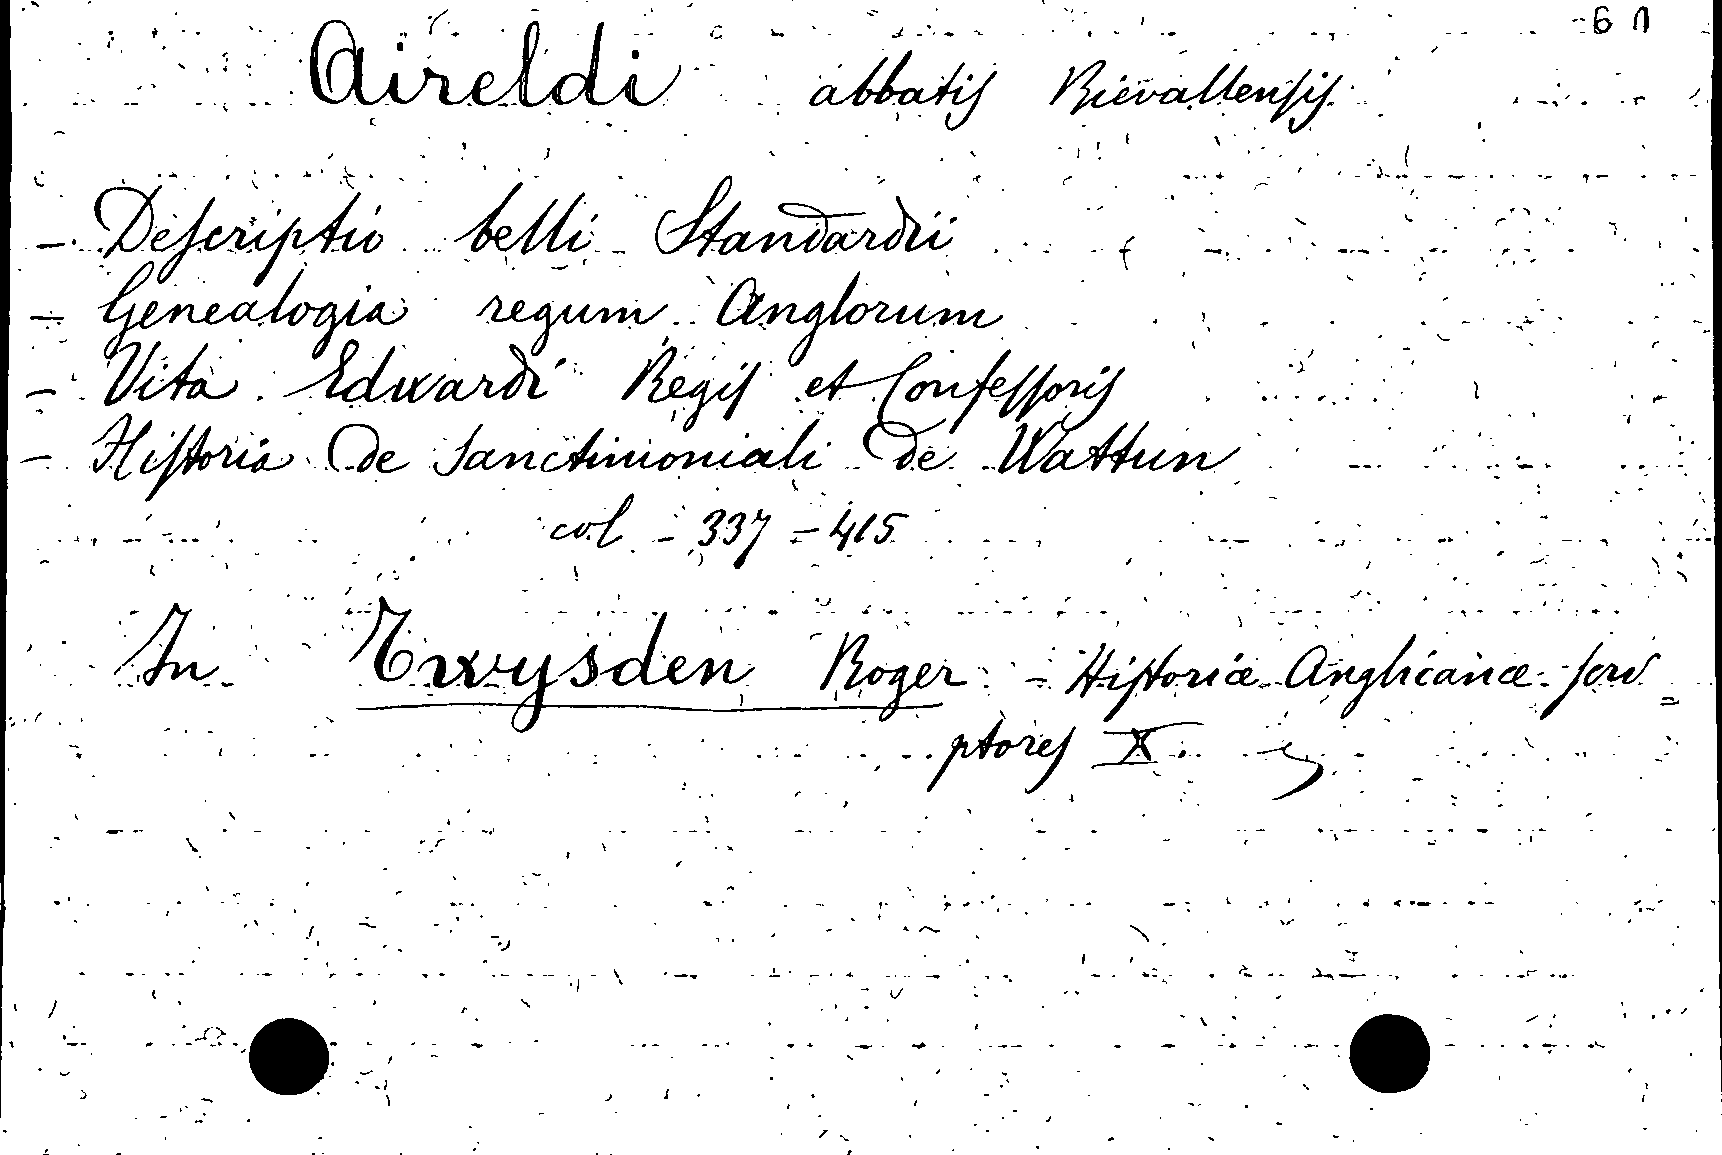 Aireldi abbatis Rievallensis
- Descriptio belli Standardii
- Genealogia regum Anglorum
- Vita Edwardi Regis et Confessoris
- Historia de Sanctimoniali de Wattun
col - 337 - 415
In Twysden Roger - Historiæ Anglicanæ scri=
ptores X